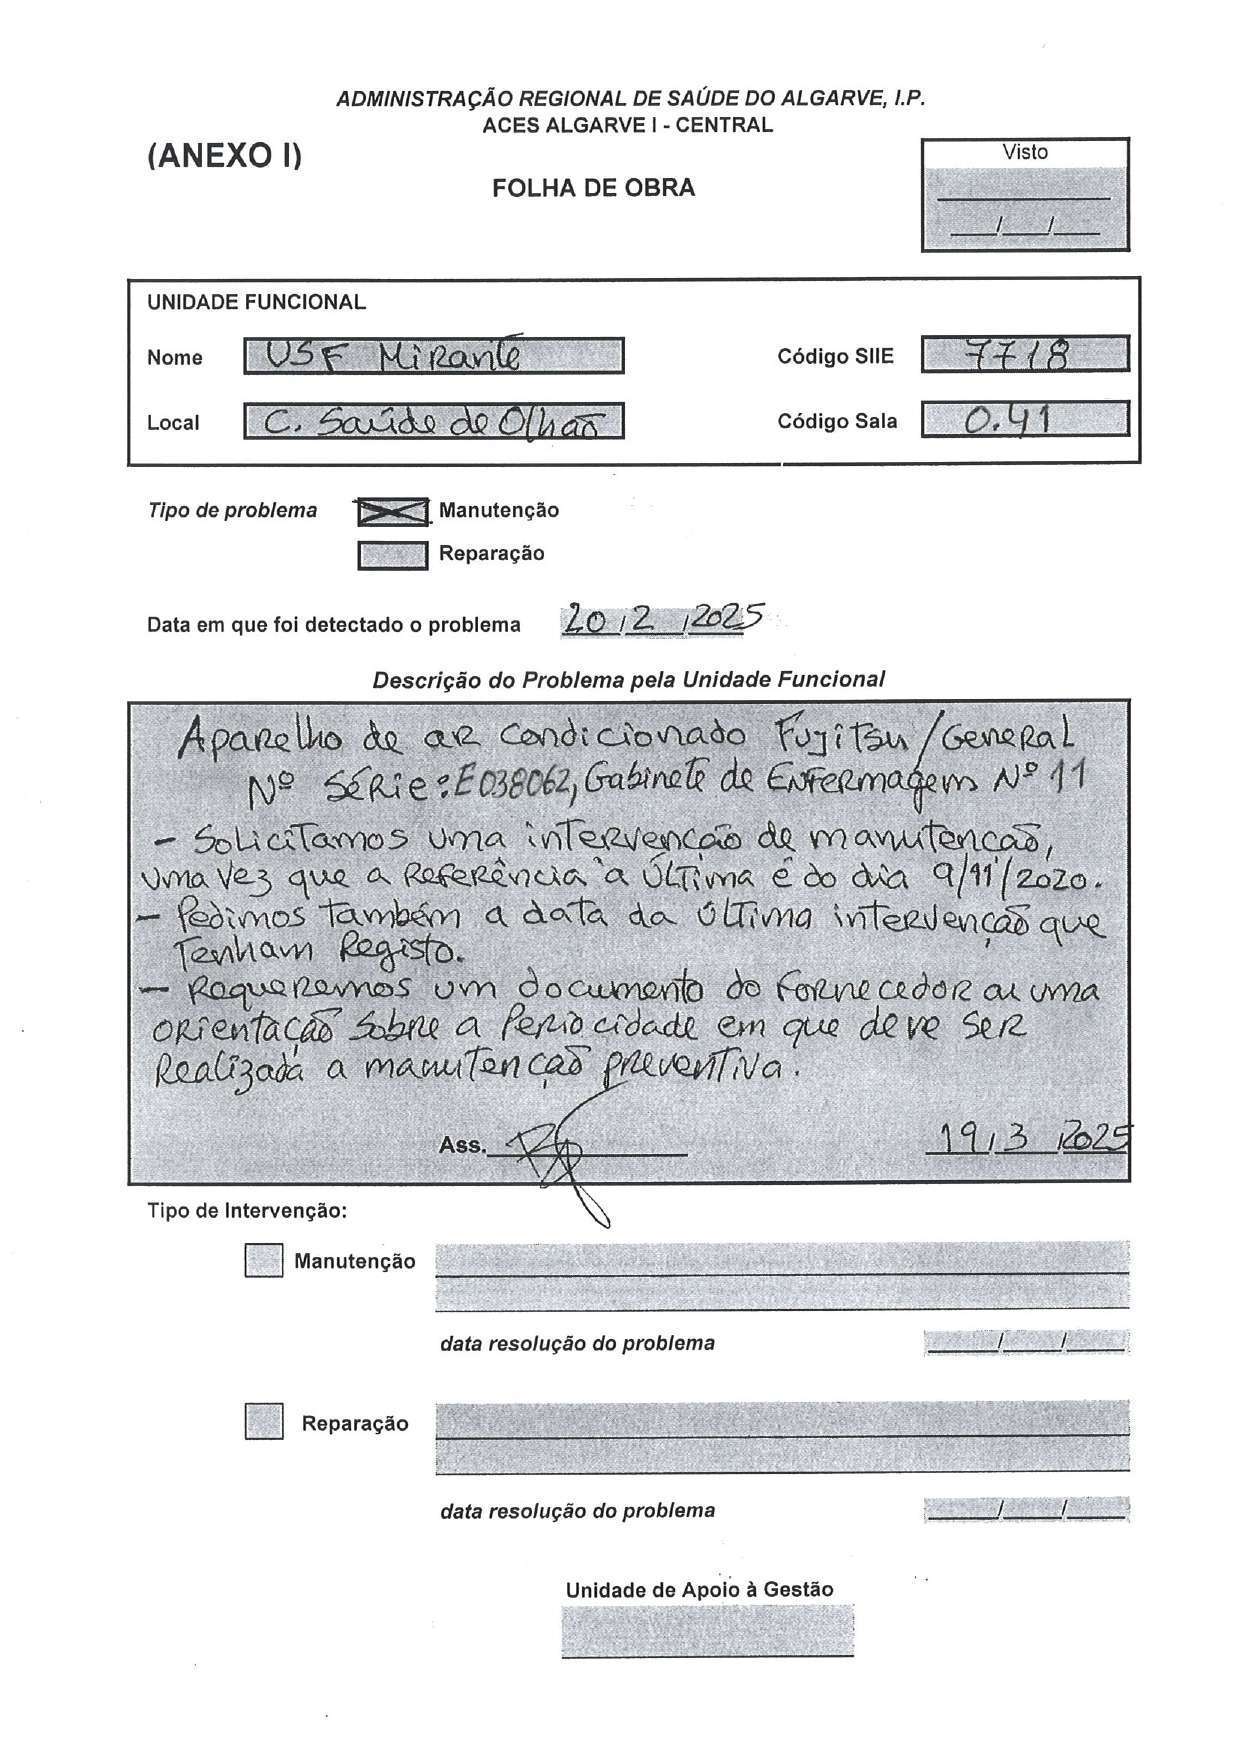 ADMINISTRAÇÃO REGIONAL DE SAÚDE DO ALGARVE, I.P.
ACES ALGARVE I - CENTRAL
(ANEXO I)
Visto
FOLHA DE OBRA
___/___/___
UNIDADE FUNCIONAL
Nome USF Mirante Código SIIE 7718
Local C. Saúde de Olhão Código Sala 0.41
Tipo de problema Manutenção
Reparação
Data em que foi detectado o problema 20/2/2025
Descrição do Problema pela Unidade Funcional
Aparelho de ar condicionado Fujitsu/General
Nº Série: E038062, Gabinete de Enfermagem Nº 11
- Solicitamos uma intervenção de manutenção,
uma vez que a referência à última é do dia 9/11/2020.
- Pedimos também a data da última intervenção que
tenham registo.
- Requeremos um documento do fornecedor ou uma
orientação sobre a periocidade em que deve ser
realizada a manutenção preventiva.
Ass. 19/3/2025
Tipo de Intervenção:
Manutenção
data resolução do problema ___/___/___
Reparação
data resolução do problema ___/___/___
Unidade de Apoio à Gestão